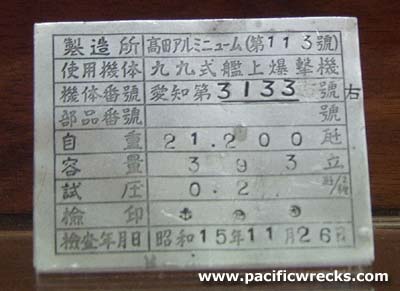 製造所 高田アルミニューム(第113號)
使用機体 九九式艦上爆撃機
機体番號 愛知第3133號右
部品番號 號
自重 21.200瓩
容量 393立
試圧 0.2
檢印
檢査年月日 昭和15年11月26日
www.pacificwrecks.com